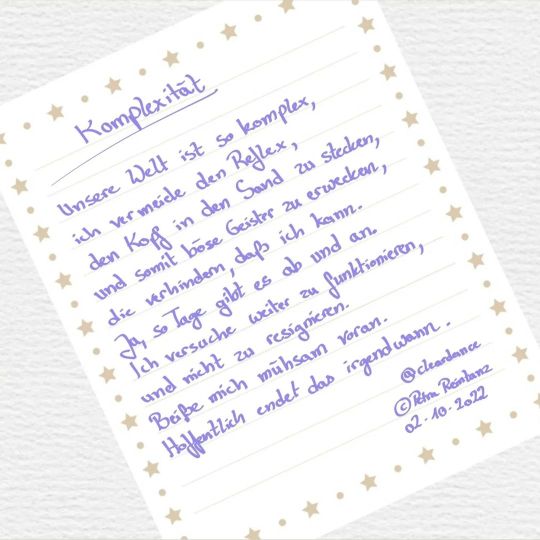 Komplexität
Unsere Welt ist so komplex,
ich vermeide den Reflex,
den Kopf in den Sand zu stecken,
und somit böse Geister zu erwecken,
die verhindern, daß ich kann.
Ja, so Tage gibt es ab und an.
Ich versuche weiter zu funktionieren,
und nicht zu resignieren.
Beiße mich mühsam voran.
Hoffentlich endet das irgendwann.
@cleardance
©Petra Reintanz
02-10-2022